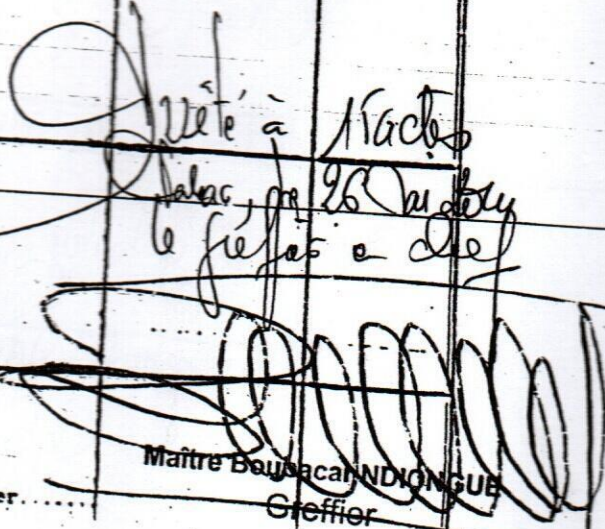 Arrêté à 1 Tactes
Dakar, le 26
le greffier en chef
Maître Boubacar NDIONGUE
Greffier
er.......